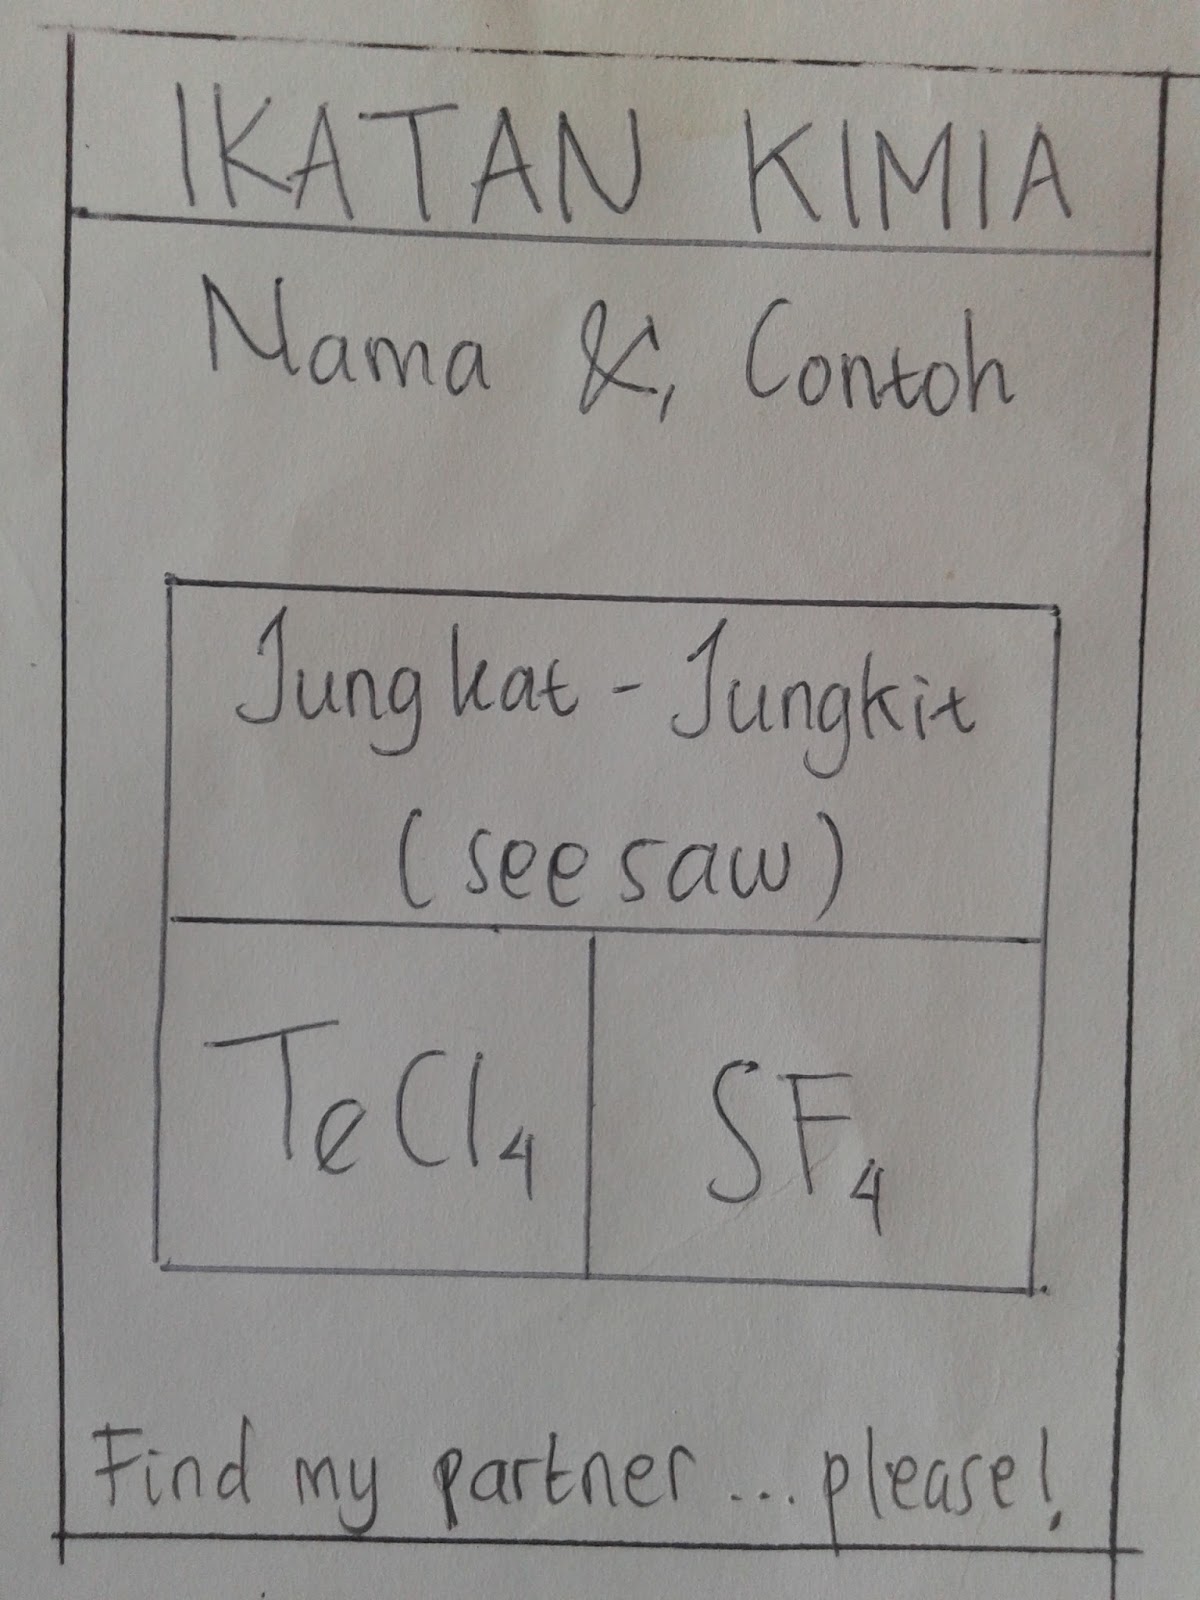 IKATAN KIMIA
Nama &, Contoh
Jungkat - Jungkit
(see saw)
TeCl₄
SF₄
Find my partner ... please!